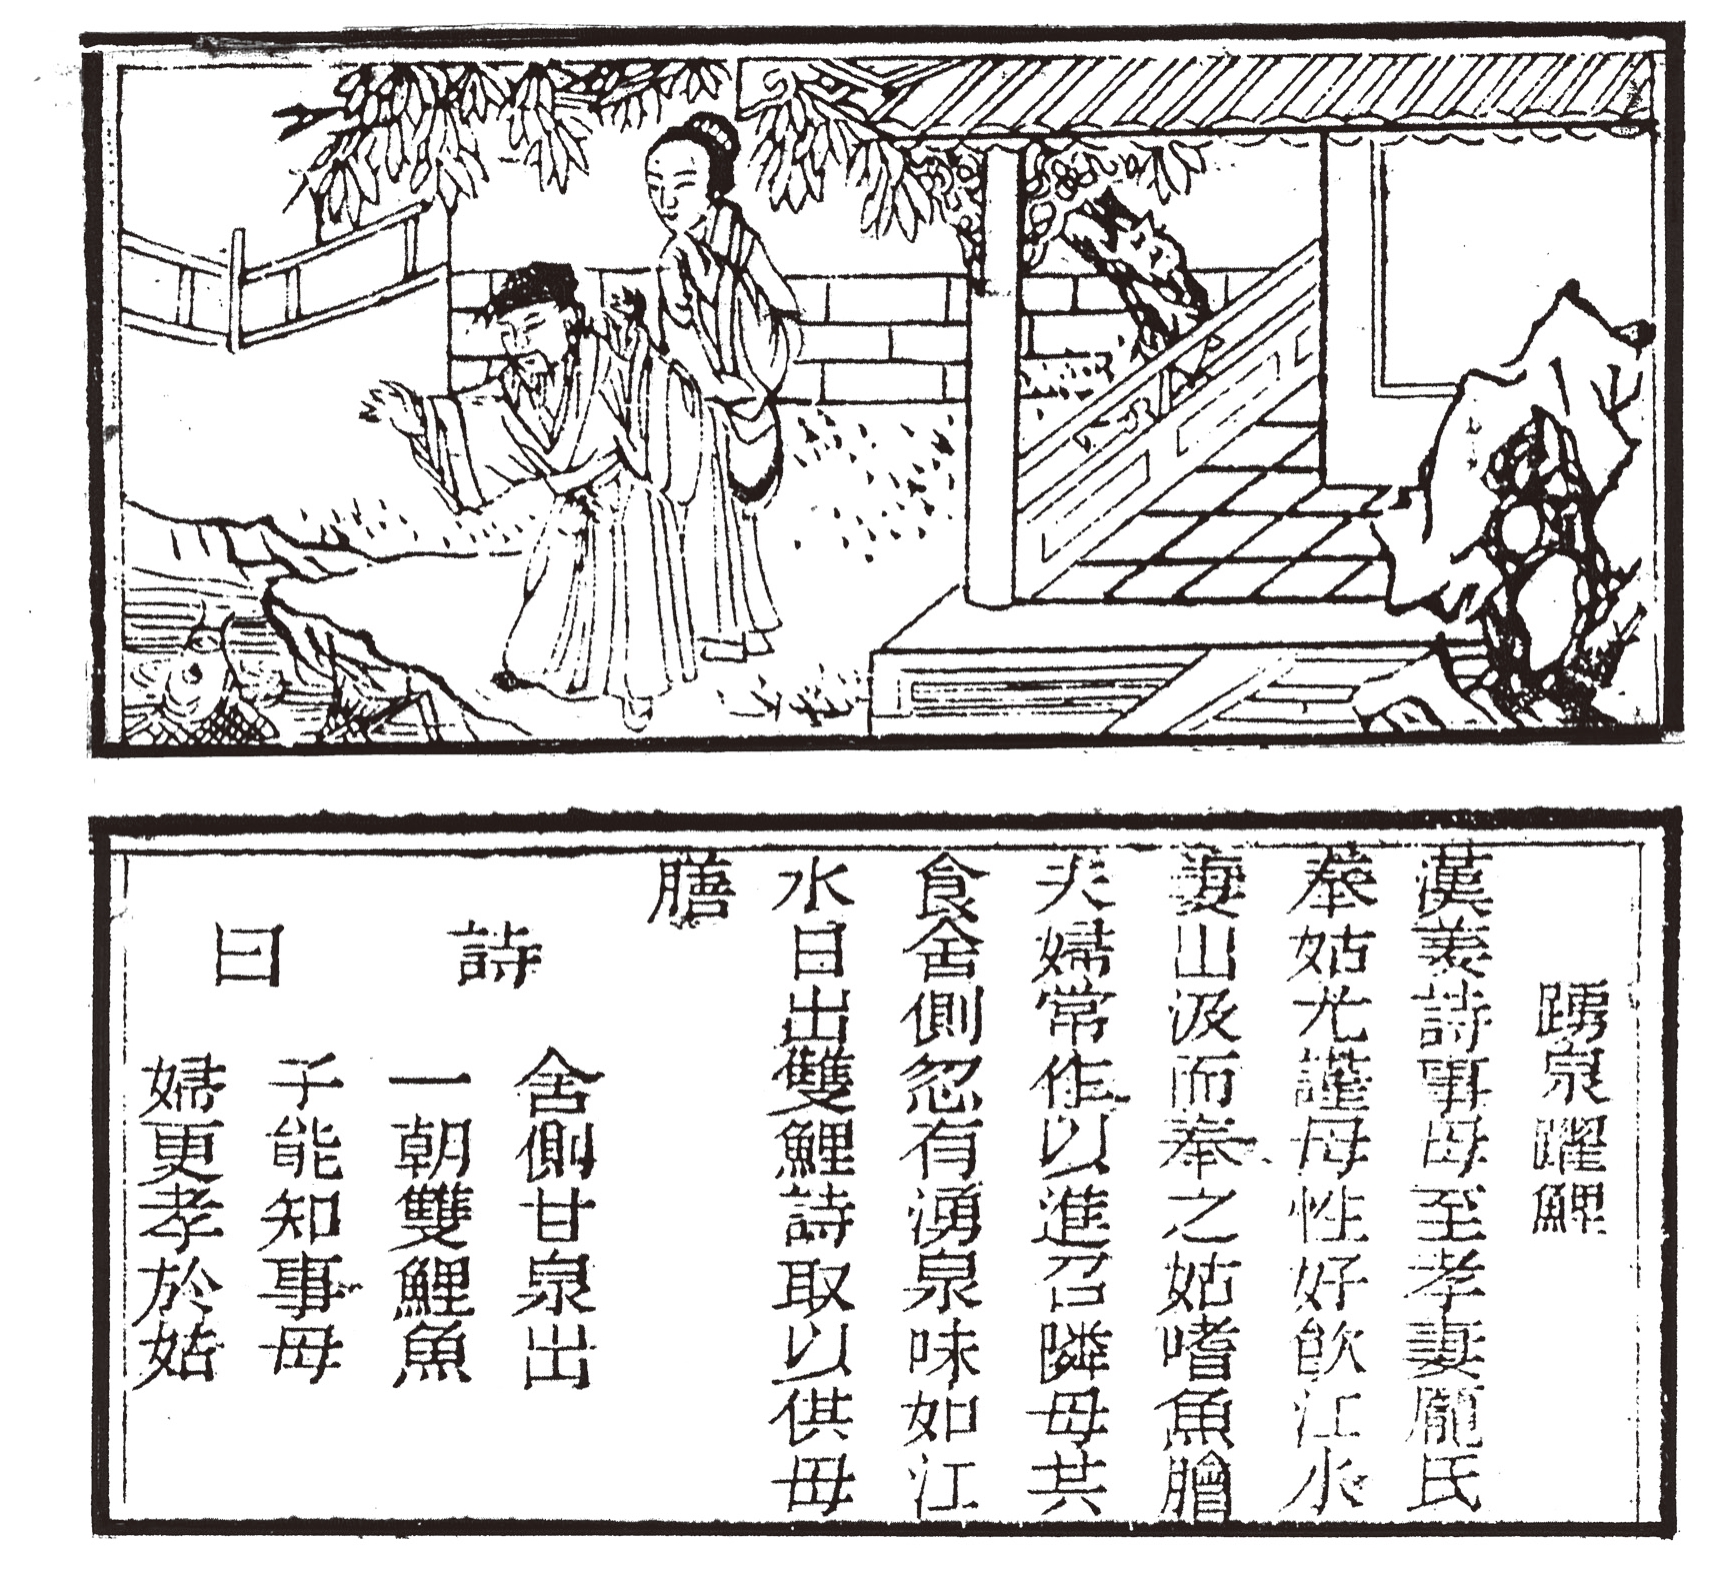 踴泉躍鯉
漢姜詩事母至孝妻龐氏
奉姑尤謹母性好飲江水
妻出汲而奉之姑嗜魚膾
夫婦常作以進召隣母共
食舍側忽有湧泉味如江
水日出雙鯉詩取以供母
膳
詩曰
舍側甘泉出
一朝雙鯉魚
子能知事母
婦更孝於姑